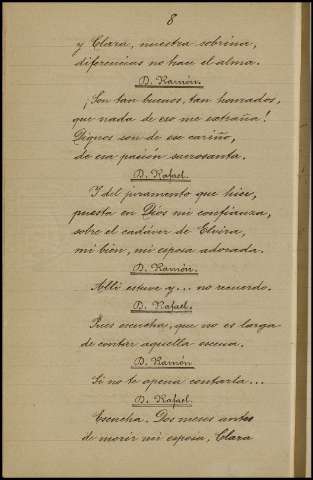 8
y Clara, nuestra sobrina,
diferencias no hace el alma.
D. Ramón.
¡Son tan buenos, tan honrados,
que nada de eso me extraña!
Dignos son de ese cariño,
de esa pasión sacrosanta.
D. Rafael.
Y del juramento que hise,
puesta en Diós mi confianza,
sobre el cadáver de Elvira,
mi bien, mi esposa adorada.
D. Ramón.
Allí estuve y... no recuerdo.
D. Rafael.
Pues escucha, que no es larga
de contar aquella escena.
D. Ramón
Si no te apena contarla...
D. Rafael.
Escucha. Dos meses antes
de morir mi esposa, Clara